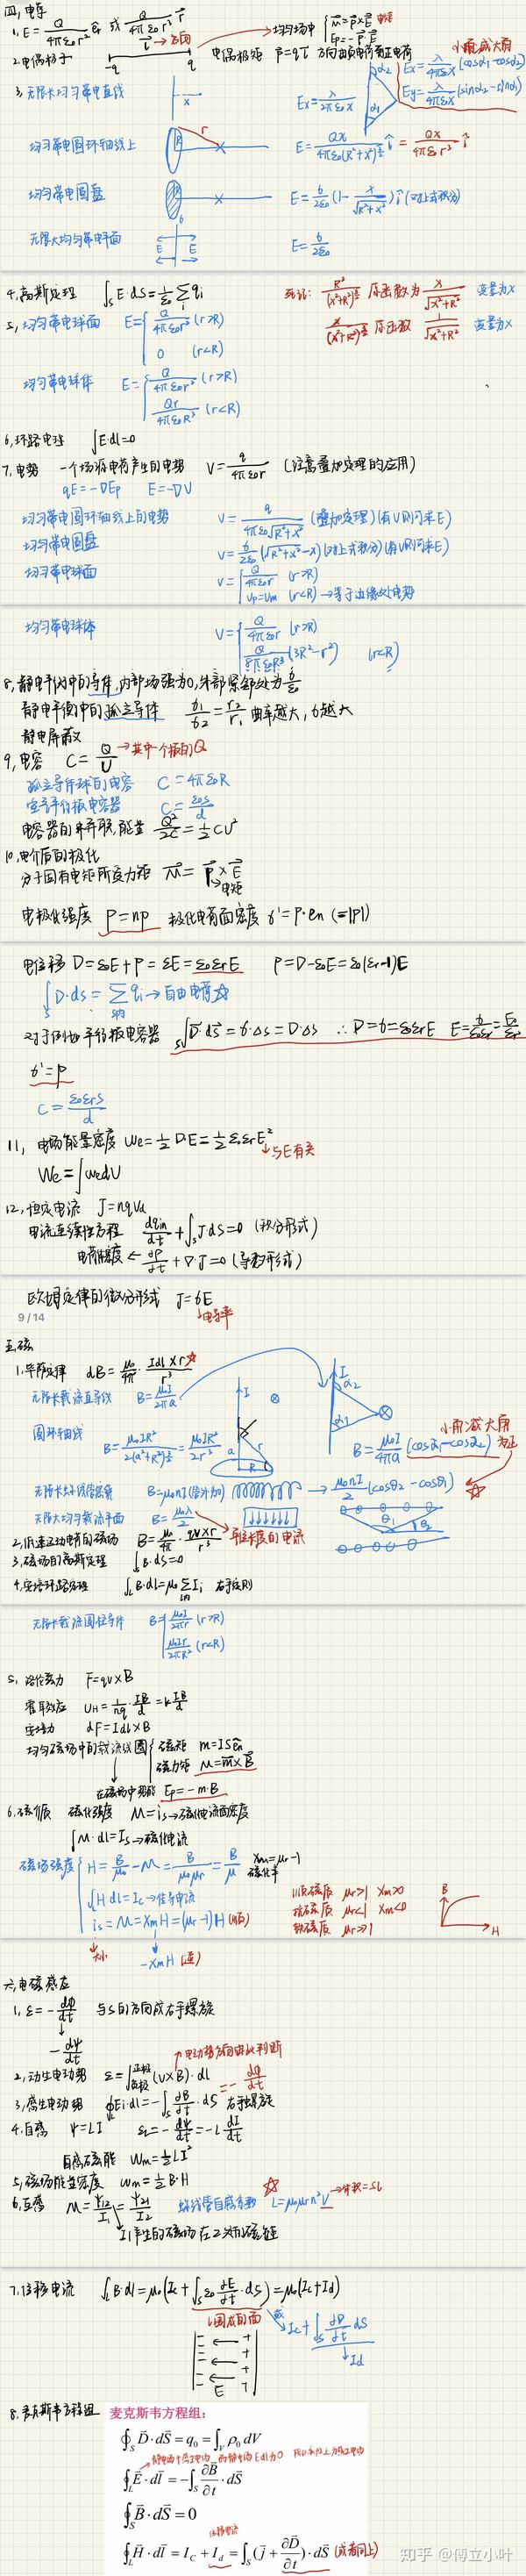 四,电学
1, E = Q/4πε0r² e̊r 或 Q/4πε0r³ r⃗
r⃗ → 方向
均匀场中 { M⃗ = p⃗×E⃗
Ep = -p⃗·E⃗
2,电偶极子 -q q 电偶极矩
小角减大角
Ex = λ/4πε0x (cosα1-cosα2)
Ey = λ/4πε0x (sinα2-sinα1)
3, 无限长均匀带电直线 x Ex = λ/2πε0x α2 α1
均匀带电圆环轴线上 R r x E = Qx/4πε0(R²+x²)^3/2 i = Qx/4πε0r³ i
均匀带电圆盘 R x E = б/2ε0 (1 - x/√R²+x²) i (对上式积分)
无限大均匀带电平面 E E E = б/2ε0
4,高斯定理 ∫s E·dS = 1/ε0 Σi qi
R²/(x²+R²)^3/2 原函数为 x/√x²+R² 变量为x
x/(x²+R²)^3/2 原函数 1/√x²+R² 变量为x
5, 均匀带电球面 E = { Q/4πε0r² (r>R)
0 (r<R)
均匀带电球体 E = { Q/4πε0r² (r>R)
Qr/4πε0R³ (r<R)
6,环路定理 ∫E·dl=0
7, 电势 一个场源电荷产生的电势 V = q/4πε0r (注意叠加定理的应用)
qE = -▽Ep E = -▽V
均匀带电圆环轴线上的电势 V = q/4πε0√R²+x² (叠加定理) (有V即可求E)
均匀带电圆盘 V = б/2ε0 (√R²+x² - x) (对上式积分) (有V即可求E)
均匀带电球面 V = { Q/4πε0r (r>R)
(r<R) → 等于边缘处电势
均匀带电球体 V = { Q/4πε0r (r>R)
Q/8πε0R³ (3R²-r²) (r<R)
8,静电平衡中的导体,内部场强为0,外部紧邻处为б/ε0
静电平衡中的孤立导体 б1/б2 = r2/r1 曲率越大,б越大
静电屏蔽
9, 电容 C = Q/U → 其中一个板的Q
孤立导体球的电容 C = 4πε0R
空气平行板电容器 C = ε0S/d
电容器的串并联,能量 Q²/2C = ½CU²
10,电介质的极化
分子固有电矩所受力矩 M⃗ = p⃗×E⃗
电矩
电极化强度 P = np 极化电荷面密度 б' = P·en (=|P|)
电位移 D = ε0E+P = εE = ε0εrE P = D-ε0E = ε0(εr-1)E
∫s D·ds = Σ qi → 自由电荷
对于例如平行板电容器 ∫s D⃗·dS⃗ = б·ΔS = D·ΔS ∴ D = б = ε0εrE E = б/ε0εr = E0/εr
б' = P
C = ε0εrS/d
11, 电场能量密度 We = ½D·E = ½ε0εrE²
与E有关
We = ∫wedV
12,恒定电流 J = nqvd
电流连续性方程 dqin/dt + ∫s J·dS = 0 (积分形式)
∂ρ/∂t + ▽·J = 0 (导数形式)
欧姆定律的微分形式 J = бE
电导率
9 / 14
五,磁
1,毕萨定律 dB = μ0/4π · Idl×r/r³
无限长载流直导线 B = μ0I/2πa
I α2 α1
B = μ0I/4πa (cosα1-cosα2)
小角减大角
圆环轴线 B = μ0IR²/2(a²+R²)^3/2 = μ0IR²/2r³ a r R
无限长螺线管 B = μ0nI (管外为0) → μ0nI/2 (cosθ2-cosθ1)
无限大均匀载流平面 B = μ0λ/2
单位长度的电流
θ1 θ2
2,低速运动电荷的磁场 B = μ0/4π · qv×r/r³
3,磁场的高斯定理 ∫s B·dS=0
4,安培环路定理 ∫L B·dl = μ0 Σ Ii 右手定则
无限长载流圆柱导体 B = { μ0I/2πr (r>R)
μ0Ir/2πR² (r<R)
5, 洛伦兹力 F = qv×B
霍耳效应 UH = 1/nq · IB/d = k IB/d
安培力 dF = Idl×B
均匀磁场中的载流线圈 { 磁矩 m = IS en
磁力矩 M = m⃗×B⃗
在磁场中势能 Ep = -m·B
6,磁介质 磁化强度 M = is → 磁化电流面密度
∫M·dl = Is → 磁化电流
磁场强度 { H = B/μ0 - M = B/μ0μr = B/μ χm = μr-1
磁化率
∫H·dl = Ic → 传导电流
is = M = χmH = (μr-1)H (顺)
大小 -χmH (逆)
顺磁质 μr>1 χm>0
抗磁质 μr<1 χm<0
铁磁质 μr>>1
B
H
六,电磁感应
1, ε = -dΦ/dt 与S的方向成右手螺旋
-dΨ/dt
电动势方向由此判断
2,动生电动势 ε = ∫ (v×B)·dl = -dΦ/dt
3,感生电动势 ∮Ei·dl = -∫s ∂B/∂t · dS 右手螺旋
4,自感 Ψ=LI εL = -dΨ/dt = -L dI/dt
自感磁能 Wm = ½LI²
5,磁场能量密度 wm = ½B·H
6,互感 M = Ψ12/I1 = Ψ21/I2 螺线管自感系数 L = μ0μrn²V → 体积=SL
I1产生的磁场在2处的磁链
7,位移电流 ∫L B·dl = μ0(Ic + ∫s ε0 ∂E/∂t · dS) = μ0(Ic+Id)
L围成的面 或 Ic + ∫s ∂D/∂t dS
Id
E
8,麦克斯韦方程组 麦克斯韦方程组:
∮S D⃗·dS⃗ = q0 = ∫V ρ0 dV
∮L E⃗·dl⃗ = -∫S ∂B⃗/∂t · dS⃗
∮S B⃗·dS⃗ = 0
位移电流
∮L H⃗·dl⃗ = IC + Id = ∫S (j⃗ + ∂D⃗/∂t)·dS⃗ (或者同上)
知乎 @傅立小叶